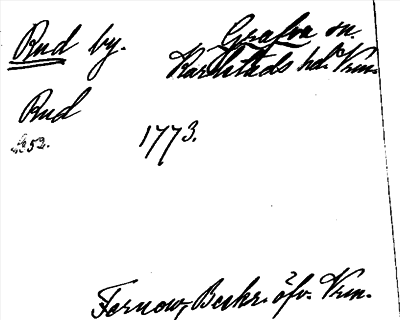 Rud by.
Grafva sn.
Karlstads hd. Vrm.
Rud
s. 52.
1773.
Fernow, Beskr. öfv. Vrm.